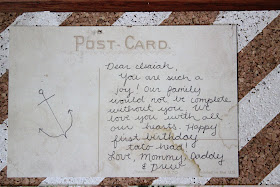 POST-CARD.
Dear Isaiah,
You are such a
joy! Our family
would not be complete
without you. We
love you with all
our hearts. Happy
first birthday
tato head!
Love, Mommy, Daddy
& Drew